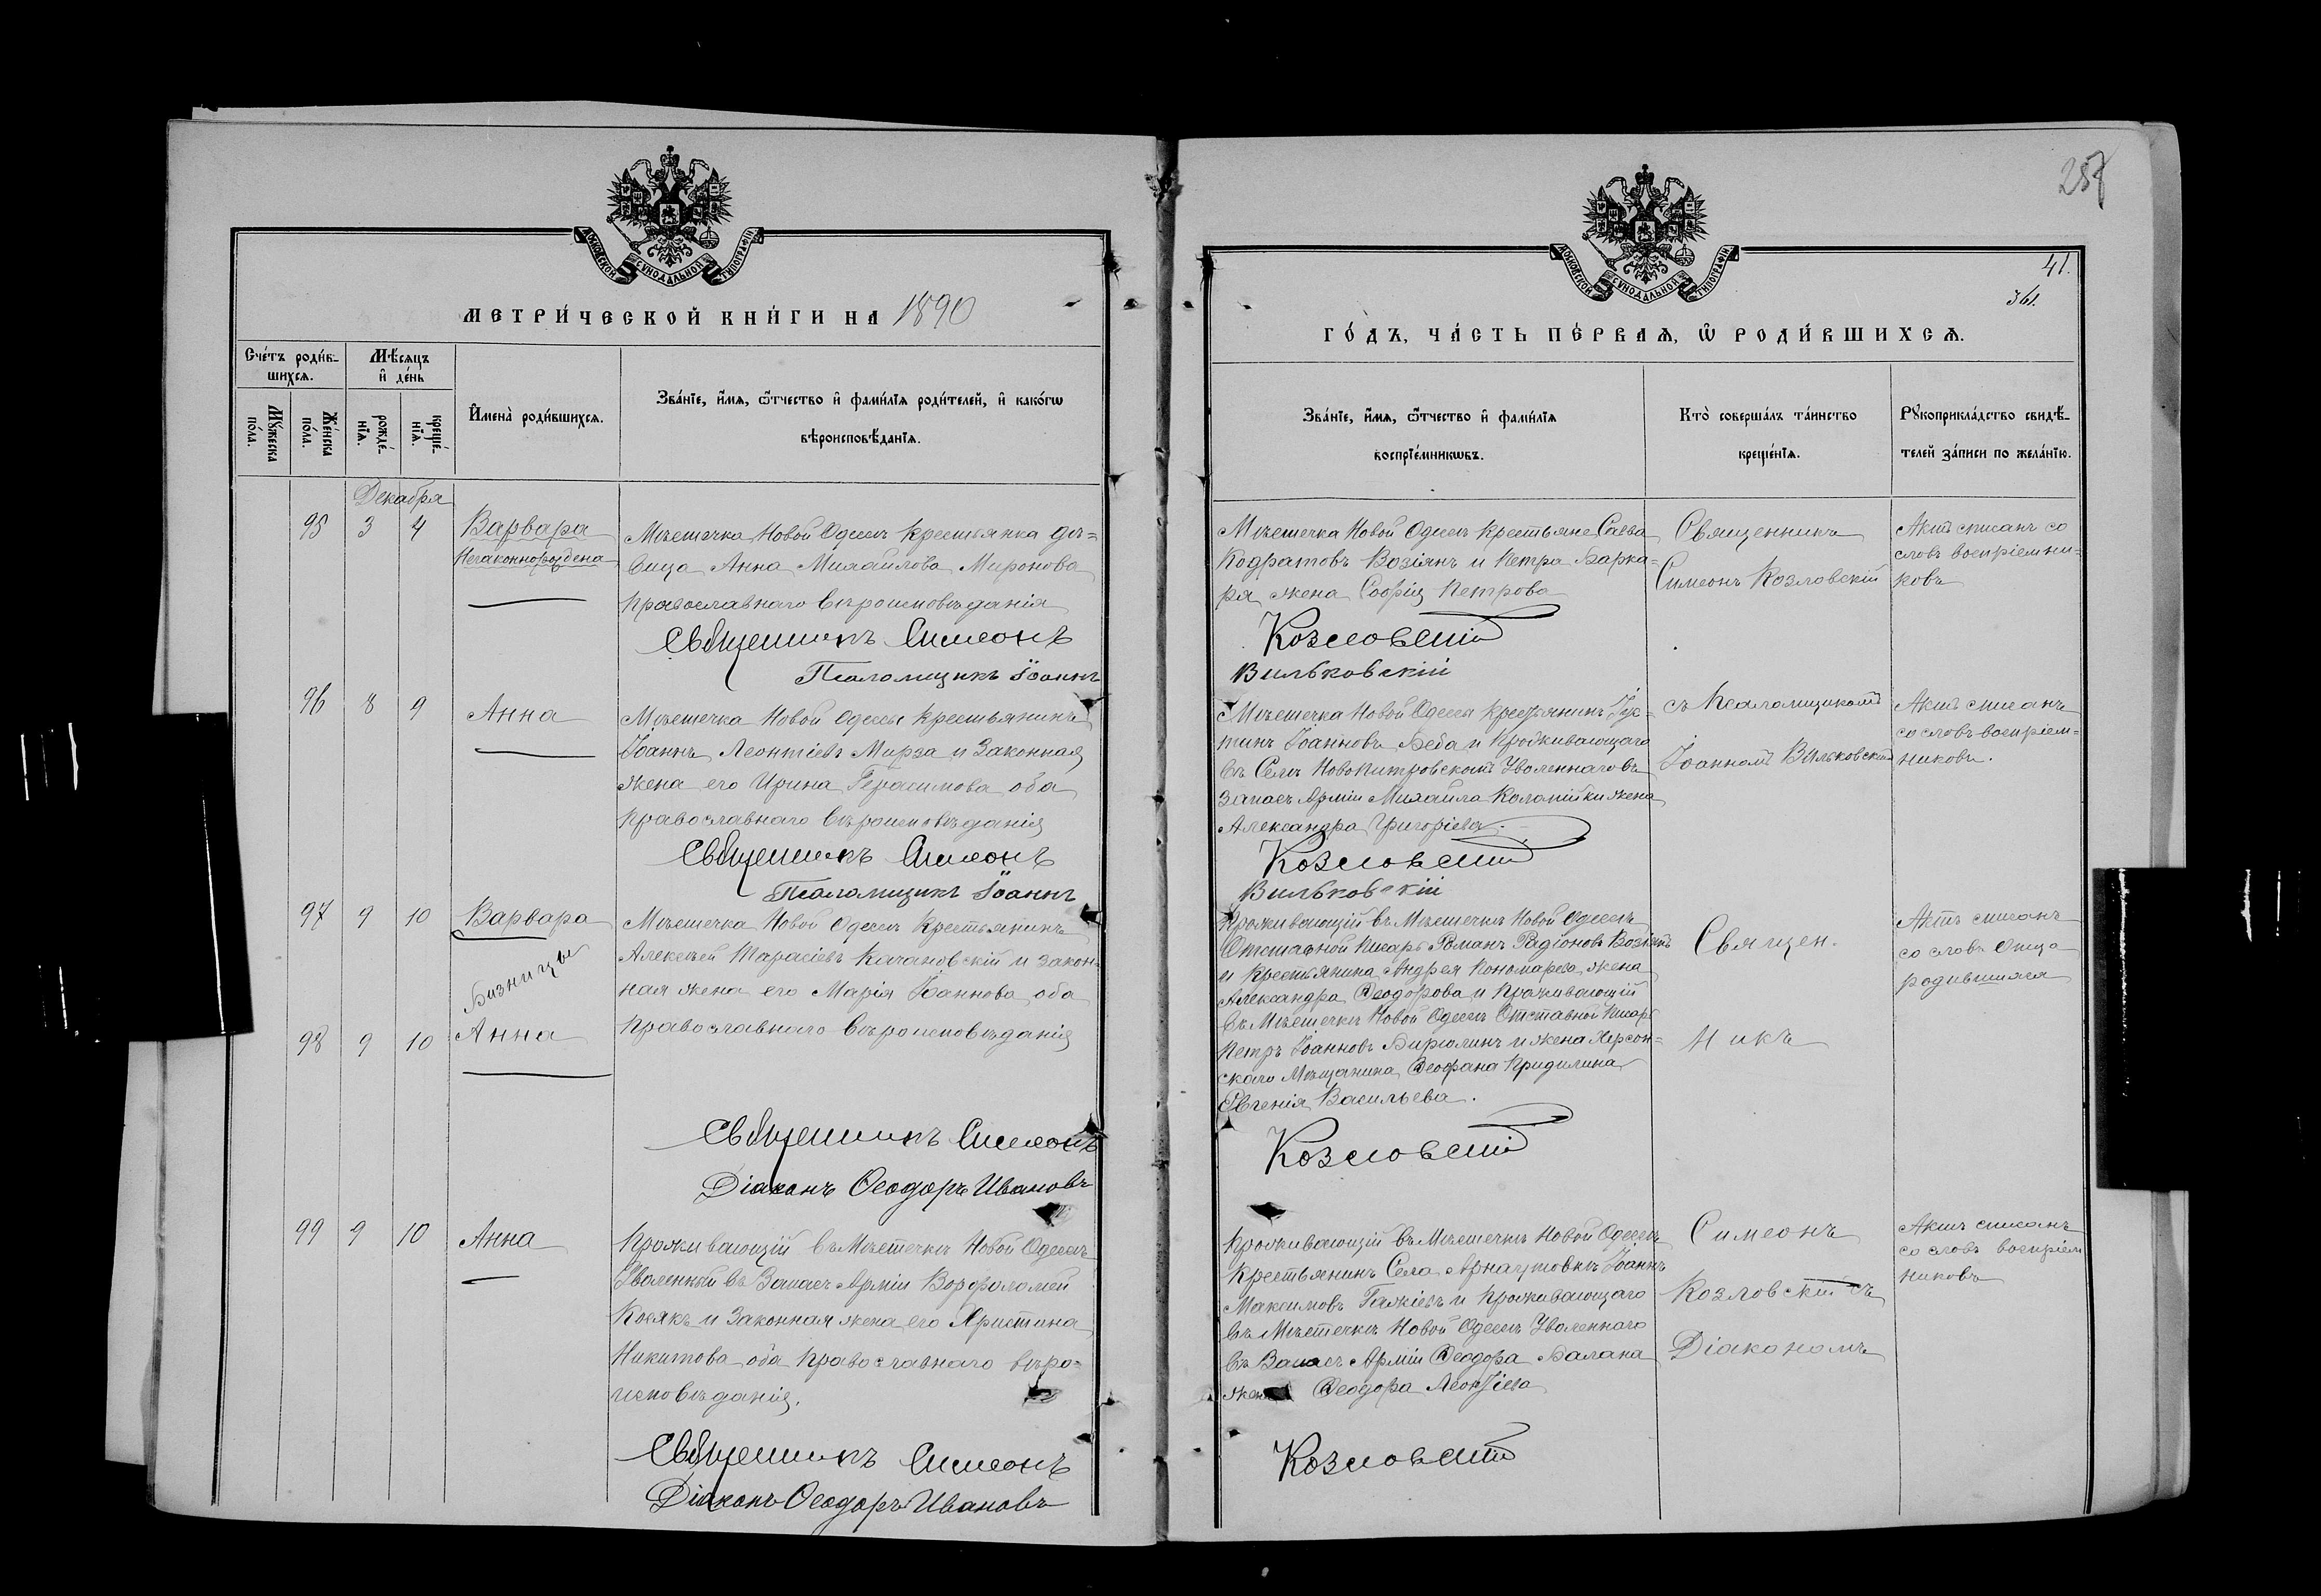 МОСКОВСКОЙ СУНОДАЛЬНОЙ ТИПОГРАФІИ
МЕТРИ́ЧЕСКОЙ КНИ́ГИ НА 1890
Сче́тъ роди́в-
шихсѧ.
Мѣ́сѧцъ
и҆ де́нь
И҆мена̀ роди́вшихсѧ.
Зва́нїе, и҆́мѧ, ѻ҆́тчество и҆ фами́лїѧ роди́телей, и҆ како́гѡ
вѣроисповѣ́данїѧ.
Мꙋ́жеска
по́ла.
Же́нска
по́ла.
рожде́-
нїѧ.
креще́-
нїѧ.
Декабря
95 3 4 Варвара
Незаконнорождена
Мѣстечка Новой Одессы крестьянка дѣ=
вица Анна Михайлова Миронова
православнаго вѣроисповѣданія
Священникъ Симеонъ
Псаломщикъ Іоаннъ
96 8 9 Анна
Мѣстечка Новой Одессы крестьянинъ
Іоаннъ Леонтіевъ Мирза и законная
жена его Ирина Герасимова оба
православнаго вѣроисповѣданія
Священникъ Симеонъ
Псаломщикъ Іоаннъ
97 9 10 Варвара
Близницы
98 9 10 Анна
Мѣстечка Новой Одессы крестьянинъ
Алексѣй Тарасіевъ Качановскій и закон=
ная жена его Марія Іоаннова оба
православнаго вѣроисповѣданія
Священникъ Симеонъ
Діаконъ Ѳеодоръ Ивановъ
99 9 10 Анна
Проживающій въ Мѣстечкѣ Новой Одессѣ
Уволенный въ Запасъ Арміи Ворфоломей
Косякъ и законная жена его Христина
Никитова оба православнаго вѣро=
исповѣданія.
Священникъ Симеонъ
Діаконъ Ѳеодоръ Ивановъ
257
41.
361.
МОСКОВСКОЙ СУНОДАЛЬНОЙ ТИПОГРАФІИ
ГО́ДЪ, ЧА́СТЬ ПЕ́РВАѦ, Ѡ҆ РОДИ́ВШИХСѦ.
Зва́нїе, и҆́мѧ, ѻ҆́тчество и҆ фами́лїѧ
воспрїе́мникѡвъ.
Кто̀ соверша́лъ та́инство
креще́нїѧ.
Рꙋкоприкла́дство свидѣ́-
телей за́писи по жела́нїю.
Мѣстечка Новой Одессы крестьяне Савва
Кодратовъ Возіянъ и Петра Барка=
ря жена Софія Петрова
Козловскій
Вильковскій
Священникъ
Симеонъ Козловскій
Актъ списанъ со
словъ воспріемни=
ковъ
Мѣстечка Новой Одессы крестьянинъ Іус=
тинъ Іоанновъ Беба и Проживающаго
въ Селѣ Новопитровскомъ Уволеннаго въ
запасъ Арміи Михаила Коломійки жена
Александра Григоріева.
Козловскій
Вильковскій
съ Псаломщикомъ
Іоанномъ Вильковскимъ
Актъ списанъ
со словъ воспріем=
никовъ.
Проживающій въ Мѣстечкѣ Новой Одессѣ
Отставной Писарь Романъ Радіоновъ Возіянъ
и крестьянина Андрея Пономарева жена
Александра Ѳеодорова и проживающій
въ Мѣстечкѣ Новой Одессѣ Отставной Писарь
Петръ Іоанновъ Бирюлинъ и жена Херсон=
скаго Мѣщанина Ѳеофана Придилина
Евгенія Васильева.
Козловскій
Священ.
никъ
Актъ списанъ
со словъ отца
родившихся
Проживающій въ Мѣстечкѣ Новой Одессѣ
Крестьянинъ Села Арнаутовки Іоаннъ
Максимовъ Гажіевъ и проживающаго
въ Мѣстечкѣ Новой Одессѣ Уволеннаго
въ Запасъ Арміи Ѳеодора Балана
жена Ѳеодора Леонтіева
Козловскій
Симеонъ
Козловскій съ
Діакономъ
Актъ списанъ
со словъ воспріем
никовъ